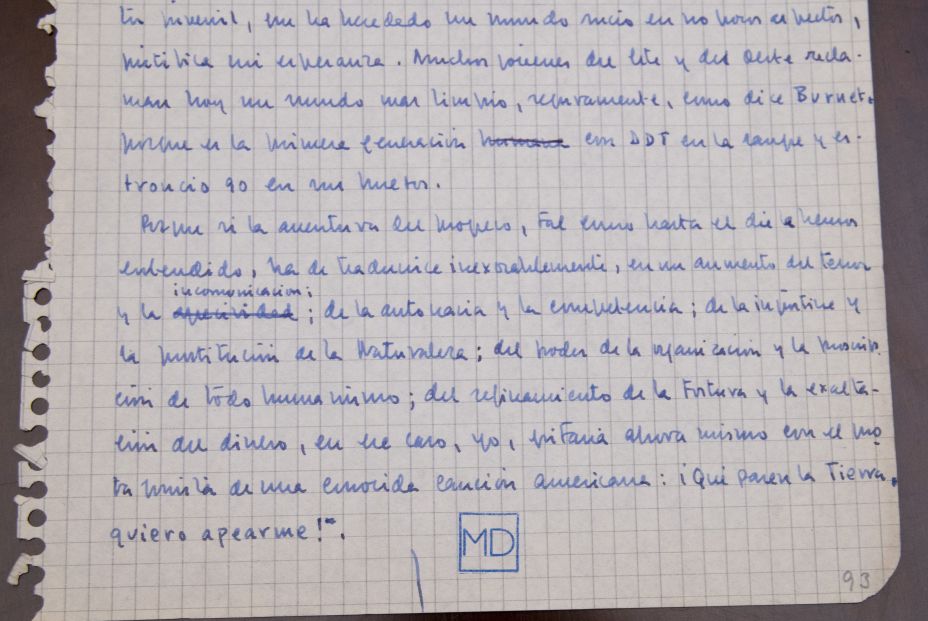 juvenil, que ha heredado un mundo sucio en no pocos aspectos,
justifica mi esperanza. Muchos jóvenes del Este y del Oeste recla-
man hoy un mundo mas limpio, seguramente, como dice Burnet,
porque es la primera generación humana con DDT en la sangre y es-
troncio 90 en sus huesos.
Porque si la aventura del progreso, tal como hasta el dia hemos
entendido, ha de traducirse inexorablemente, en un aumento del terror
incomunicacion;
y la ; de la autocracia y la ; de la injusticia y
la prostitución de la Naturaleza; del poder de la organizacion y la proscrip-
ción de todo humanismo; del refinamiento de la tortura y la exalta-
ción del dinero, en ese caso, yo, gritaria ahora mismo con el pro
tagonista de una conocida canción americana: ¡Que paren la Tierra,
quiero apearme!".
MD
93